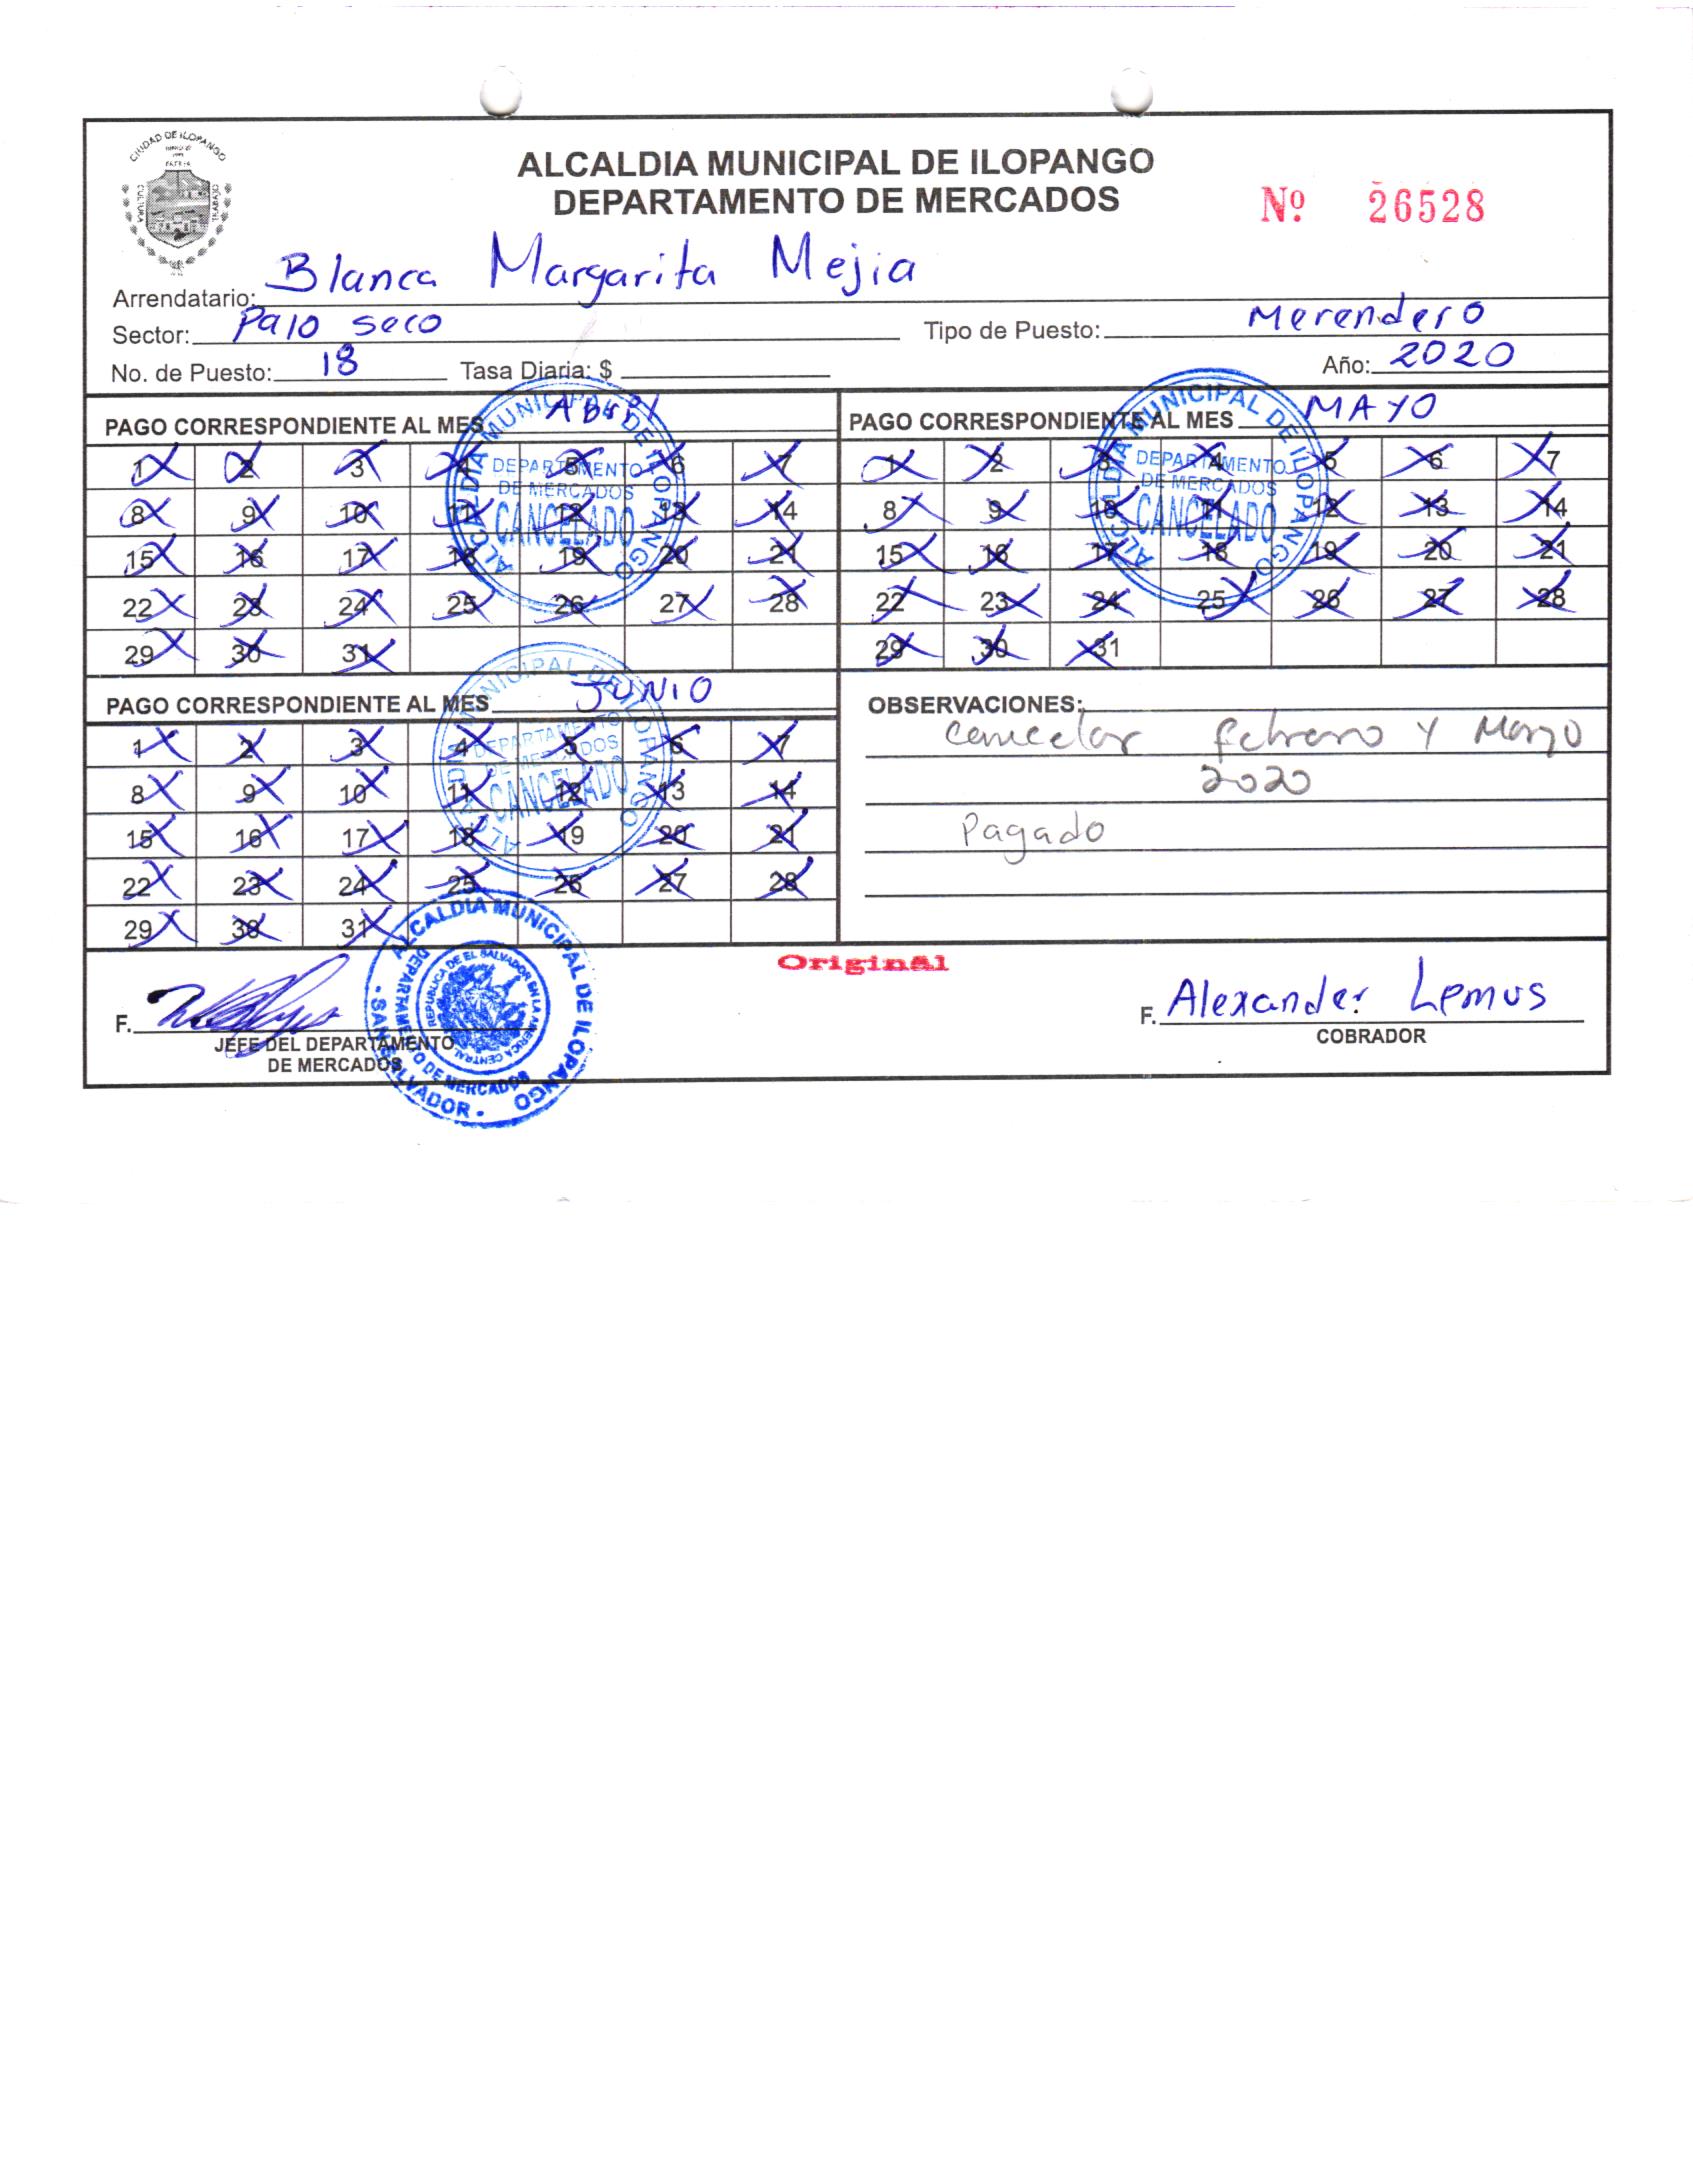 CIUDAD DE ILOPANGO
CULTURA
TRABAJO
ALCALDIA MUNICIPAL DE ILOPANGO
DEPARTAMENTO DE MERCADOS
Nº 26528
Arrendatario: Blanca Margarita Mejia
Sector: Palo seco Tipo de Puesto: Merendero
No. de Puesto: 18 Tasa Diaria: $ Año: 2020
PAGO CORRESPONDIENTE AL MES Abril
1 2 3 4 5 6 7
8 9 10 11 12 13 14
15 16 17 18 19 20 21
22 23 24 25 26 27 28
29 30 31
ALCALDIA MUNICIPAL DE ILOPANGO
DEPARTAMENTO
DE MERCADOS
CANCELADO
PAGO CORRESPONDIENTE AL MES MAYO
1 2 3 4 5 6 7
8 9 10 11 12 13 14
15 16 17 18 19 20 21
22 23 24 25 26 27 28
29 30 31
ALCALDIA MUNICIPAL DE ILOPANGO
DEPARTAMENTO
DE MERCADOS
CANCELADO
PAGO CORRESPONDIENTE AL MES JUNIO
1 2 3 4 5 6 7
8 9 10 11 12 13 14
15 16 17 18 19 20 21
22 23 24 25 26 27 28
29 30 31
ALCALDIA MUNICIPAL DE ILOPANGO
DEPARTAMENTO
DE MERCADOS
CANCELADO
OBSERVACIONES:
cancelar febrero y Marzo
2020
Pagado
Original
F.
JEFE DEL DEPARTAMENTO
DE MERCADOS
ALCALDIA MUNICIPAL DE ILOPANGO
DEPARTAMENTO DE MERCADOS
REPUBLICA DE EL SALVADOR EN LA AMERICA CENTRAL
- SAN SALVADOR -
F. Alexander Lemus
COBRADOR